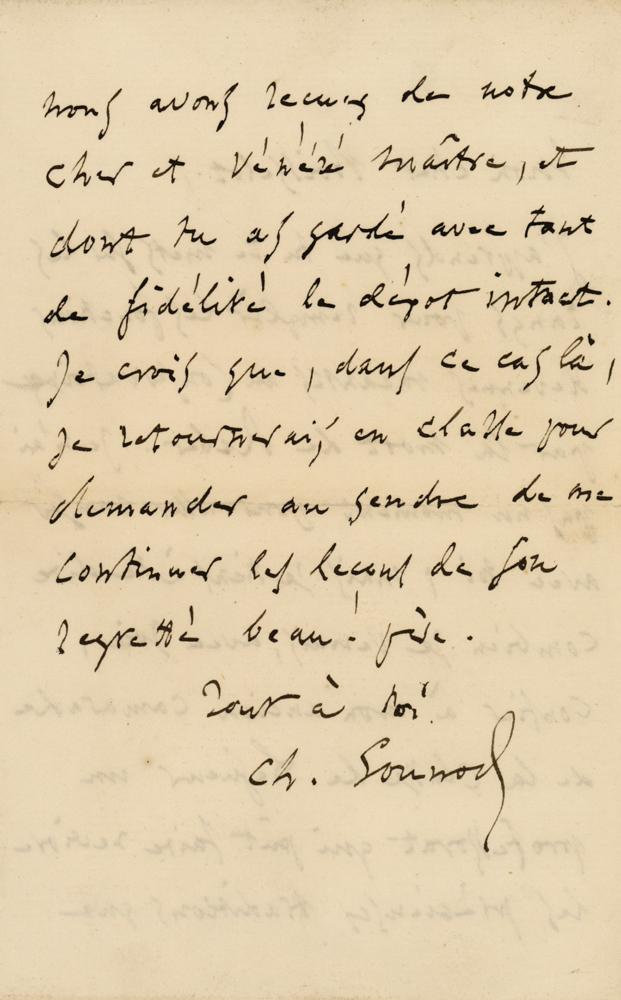 nous avons reçues de notre
cher et vénéré maître, et
dont tu as gardé avec tant
de fidélité le dépot intact.
Je crois que, dans ce cas là,
je retournerais en classe pour
demander au gendre de me
continuer les leçons de son
regretté beau-père.
Tout à toi
Ch. Gounod